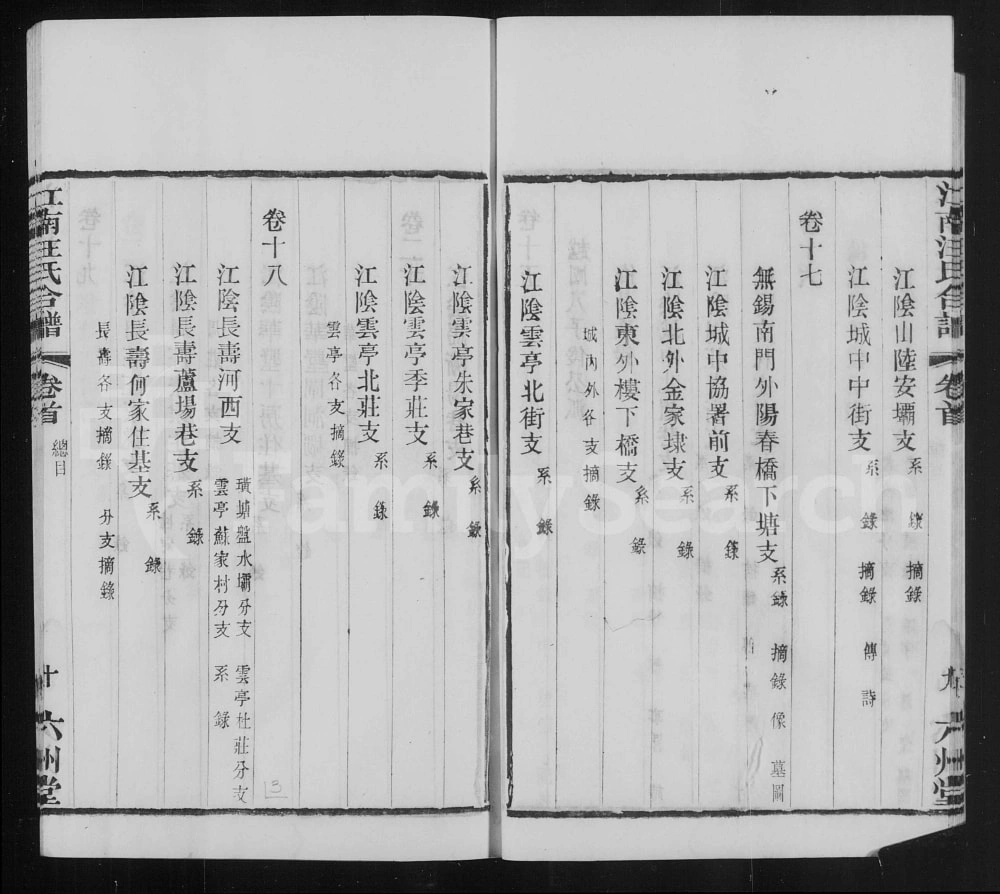 江陰山陸安壩支 系 錄 摘錄
江陰城中中街支 系 錄 摘錄 傳 詩
卷十七
無錫南門外陽春橋下塘支 系 錄 摘錄 像 墓圖
江陰城中協署前支 系 錄
江陰北外金家埭支 系 錄
江陰東外樓下橋支 系 錄
城內外各支摘錄
江陰雲亭北街支 系 錄
江南汪氏合譜 卷首 九 六州堂
江陰雲亭朱家巷支 系 錄
江陰雲亭季莊支 系 錄
江陰雲亭北莊支 系 錄
雲亭各支摘錄
卷十八
江陰長壽河西支
璜塘盤水壩分支 雲亭杜莊分支
雲亭蘇家村分支 系 錄
江陰長壽蘆場巷支 系 錄
江陰長壽何家住基支 系 錄
長壽各支摘錄 分支摘錄
江南汪氏合譜 卷首 總目 十 六州堂
13
FamilySearch